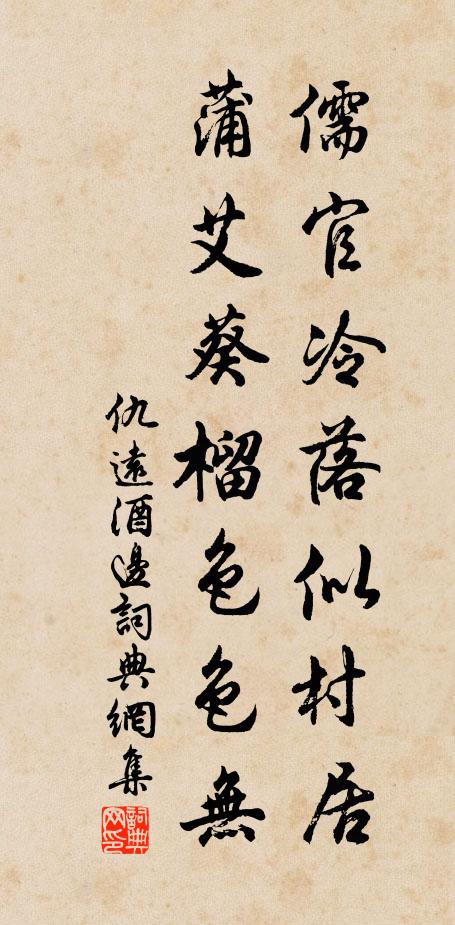 儒官冷落似村居
蒲艾葵榴色色無
仇遠酒邊詞典網集
詞典网印